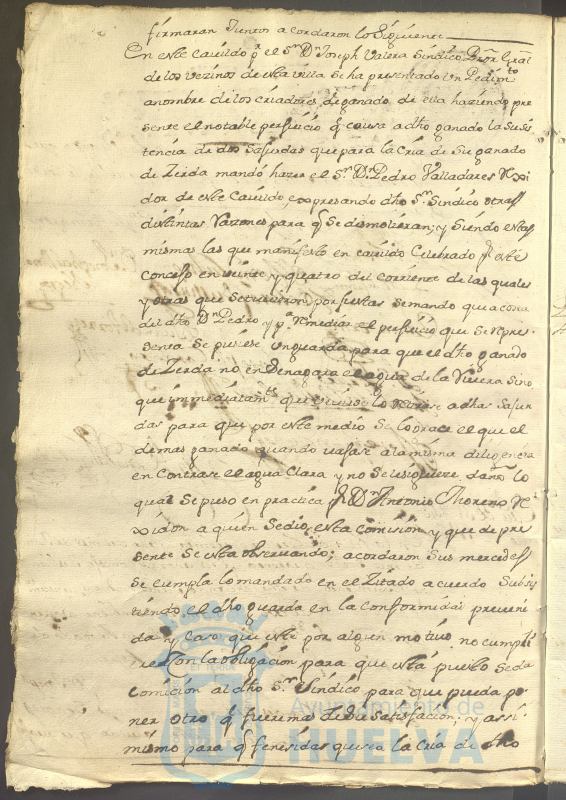 firmaran Juntos acordaron lo Siguiente
En este Cavildo pr. el Sr. Dn. Joseph Valera Sindico Pror. Gral
de los vezinos de esta villa se ha presentado Un Pedimto
anombre de los criadores de ganado de ella haziendo pre
sente el notable perjuicio q causa adho ganado la Susis
tencia de dos Sahurdas que para la Cria de Su ganado
de Zerda mandó hazer el Sr. Dn. Pedro Valladares Rexi
dor de este Cavildo, expresando dho Sr. Sindico otras
distintas Razones para q Se demolieran; y Siendo estas
mismas las que manifestó en cavildo Celebrado pr este
Concejo en veinte y quatro del Corriente de las quales
y otras que Setuvieron por justas Semandó que a costa
del dho Dn. Pedro y pa. Remediar el perjuicio que Se repre-
senta Se pusiese un guarda para que el dho ganado
de Zerda no en agua de la Rivera Sino
que immediatamte. que lo adhas Sahur
das para que por este medio Se lograce el que el
demas ganado quando a la misma diligencia
encontrase el agua Clara y no Selesiguiere daño lo
qual Se puso en practica pr Dn. Antonio Moreno Re
xidor a quien Sedio esta Comision y que de pre
sente Se esta observando; acordaron Sus mercedes
Se cumpla lo mandado en el Zitado acuerdo Subsis
tiendo el dho guarda en la Conformidad preveni
da y Caso que este por algun motivo no cumpli
ere Con la obligacion para que esta puesto Seda
Comision al dho Sr. Sindico para que pueda po
ner otro q fuere de Su Satisfacion; y assi
mismo para q fenesidas que sea la Cria de dho
Ayuntamiento de
HUELVA